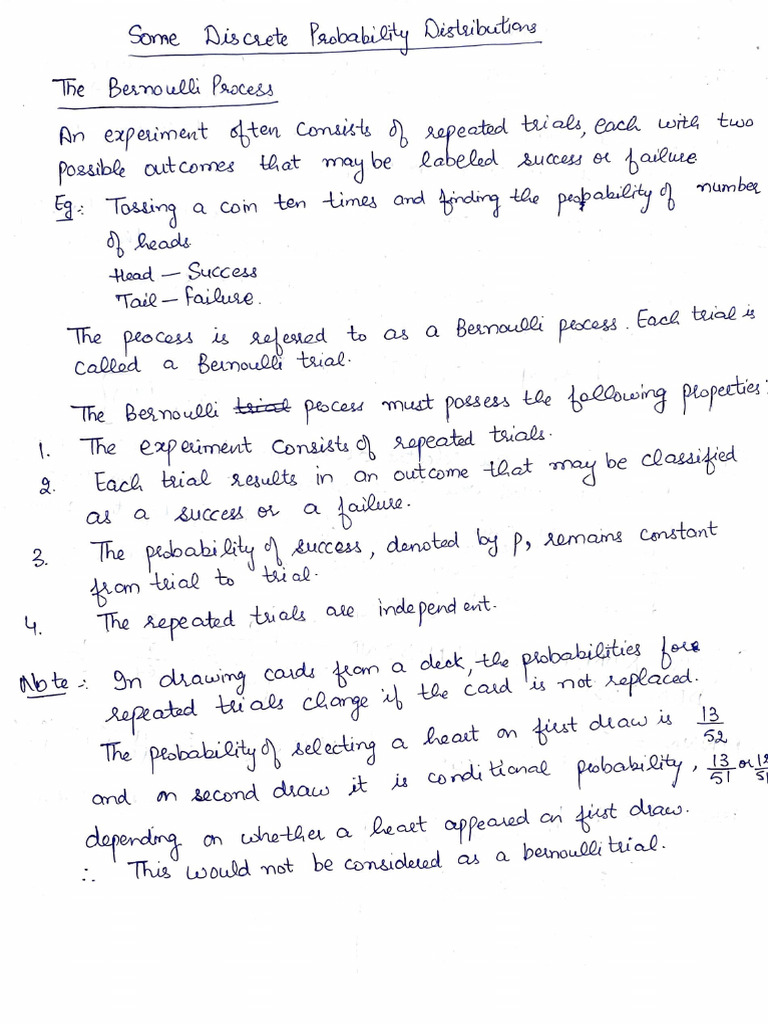 Some Discrete Probability Distributions
The Bernoulli Process
An experiment often consists of repeated trials, each with two
possible outcomes that may be labeled success or failure
Eg: Tossing a coin ten times and finding the probability of number
of heads
Head – Success
Tail – Failure.
The process is referred to as a Bernoulli process. Each trial is
called a Bernoulli trial.
The Bernoulli trial process must possess the following properties:
1. The experiment consists of repeated trials.
2. Each trial results in an outcome that may be classified
as a success or a failure.
3. The probability of success, denoted by p, remains constant
from trial to trial.
4. The repeated trials are independent.
Note: In drawing cards from a deck, the probabilities for
repeated trials change if the card is not replaced.
The probability of selecting a heart on first draw is 13/52
and on second draw it is conditional probability, 13/51 or 12/51
depending on whether a heart appeared on first draw.
∴ This would not be considered as a bernoulli trial.